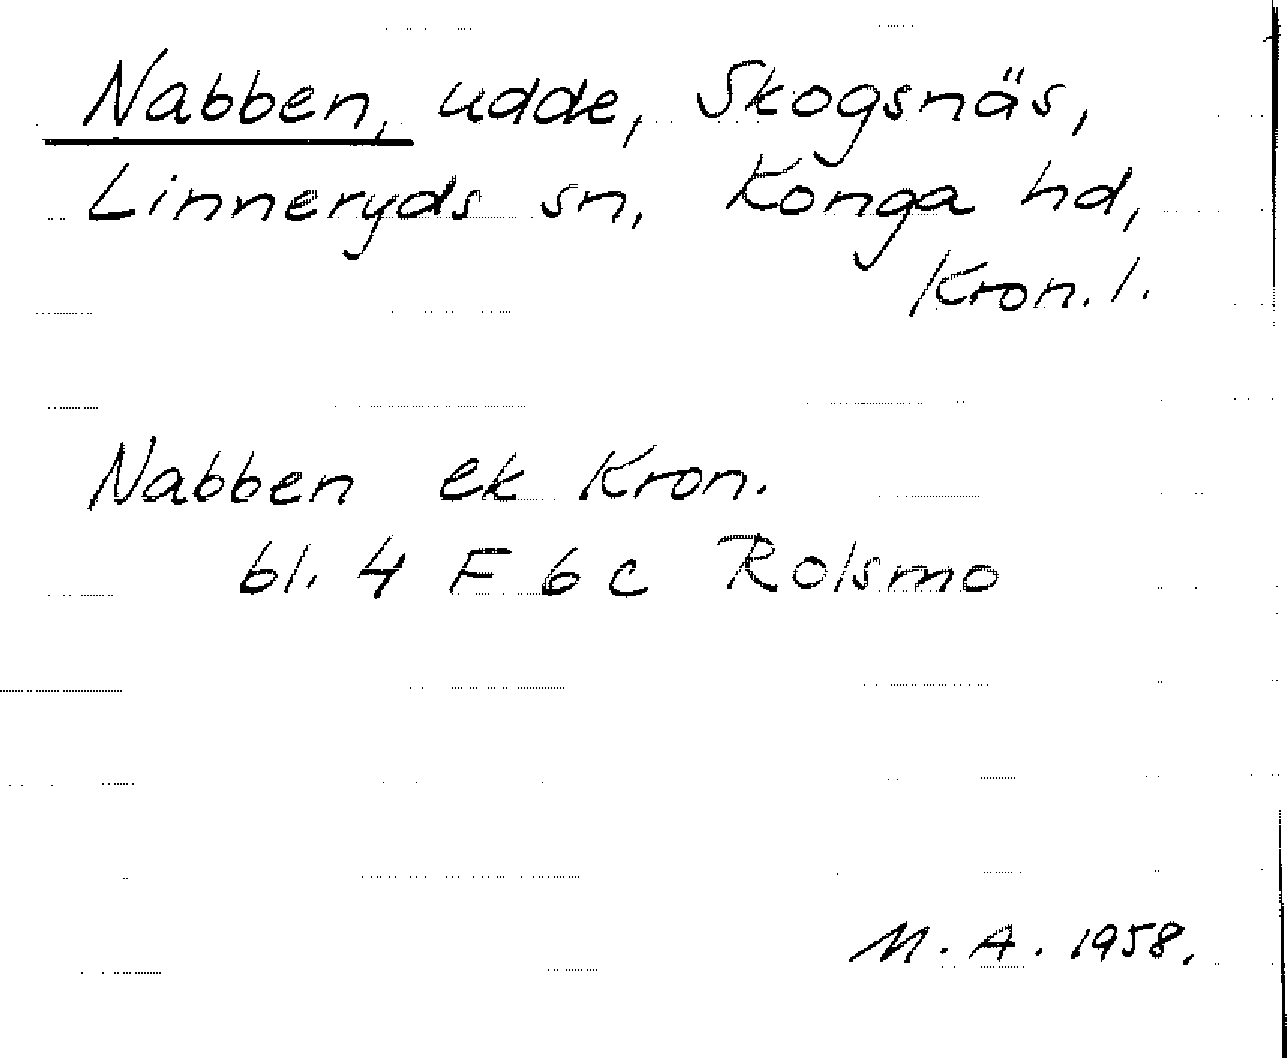 Nabben, udde, Skogsnäs,
Linneryds sn, Konga hd,
Kron. l.
Nabben ek Kron.
bl. 4 F 6 c Rolsmo
M. A. 1958.